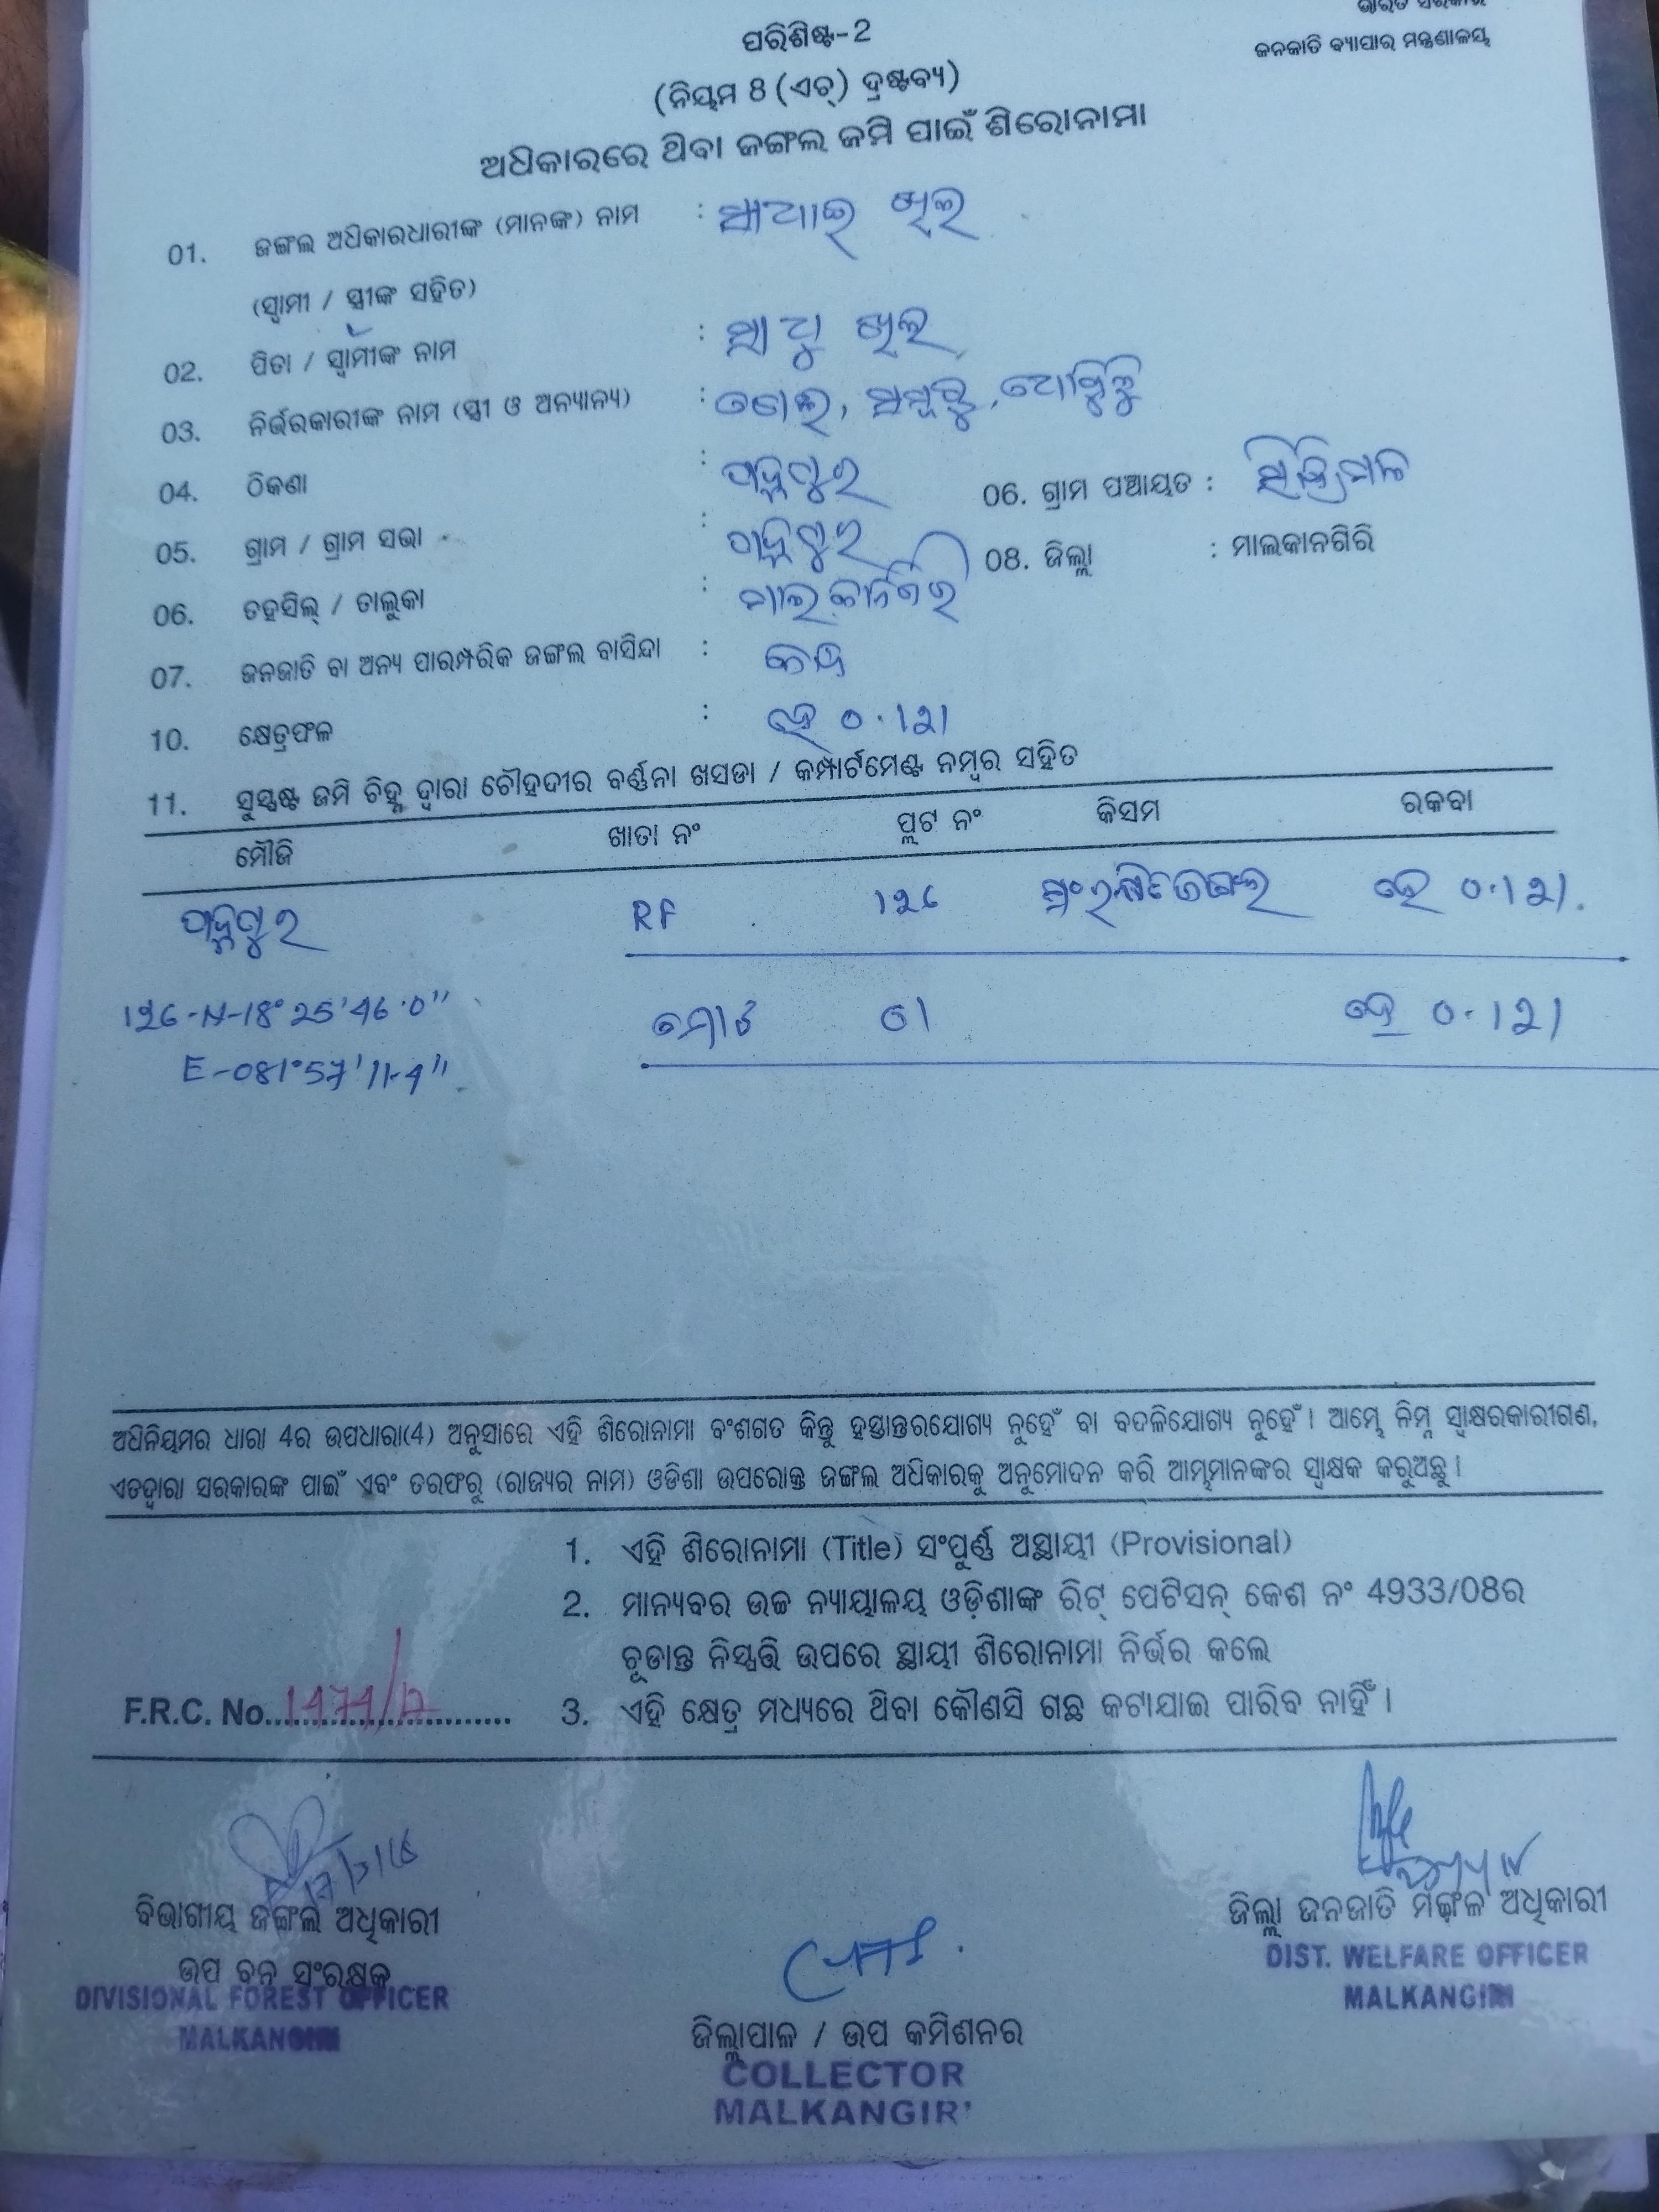 ଭାରତ ସରକାର
ଜନଜାତି ବ୍ୟାପାର ମନ୍ତ୍ରଣାଳୟ
ପରିଶିଷ୍ଟ-2
(ନିୟମ 8 (ଏଚ୍) ଦ୍ରଷ୍ଟବ୍ୟ)
ଅଧିକାରରେ ଥିବା ଜଙ୍ଗଲ ଜମି ପାଇଁ ଶିରୋନାମା
01. ଜଙ୍ଗଲ ଅଧିକାରଧାରୀଙ୍କ (ମାନଙ୍କ) ନାମ :
(ସ୍ୱାମୀ / ସ୍ତ୍ରୀଙ୍କ ସହିତ)
02. ପିତା / ସ୍ୱାମୀଙ୍କ ନାମ :
03. ନିର୍ଭରକାରୀଙ୍କ ନାମ (ସ୍ତ୍ରୀ ଓ ଅନ୍ୟାନ୍ୟ) :
04. ଠିକଣା : 06. ଗ୍ରାମ ପଞ୍ଚାୟତ :
05. ଗ୍ରାମ / ଗ୍ରାମ ସଭା : 08. ଜିଲ୍ଲା : ମାଲକାନଗିରି
06. ତହସିଲ୍ / ତାଲୁକା : ମାଲକାନଗିରି
07. ଜନଜାତି ବା ଅନ୍ୟ ପାରମ୍ପରିକ ଜଙ୍ଗଲ ବାସିନ୍ଦା :
10. କ୍ଷେତ୍ରଫଳ : ହେ ୦.୧୨୧
11. ସୁସ୍ପଷ୍ଟ ଜମି ଚିହ୍ନ ଦ୍ୱାରା ଚୌହଦୀର ବର୍ଣ୍ଣନା ଖସଡା / କମ୍ପାର୍ଟମେଣ୍ଟ ନମ୍ବର ସହିତ
ମୌଜି ଖାତା ନଂ ପ୍ଲଟ ନଂ କିସମ ରକବା
RF ୧୨୬ ସଂରକ୍ଷିତ ଜଙ୍ଗଲ ହେ ୦.୧୨୧.
୧୨୬-N-18°25'46.0" ମୋଟ ହେ ୦.୧୨୧
E-081°57'11.4"
ଅଧିନିୟମର ଧାରା 4ର ଉପଧାରା(4) ଅନୁସାରେ ଏହି ଶିରୋନାମା ବଂଶଗତ କିନ୍ତୁ ହସ୍ତାନ୍ତରଯୋଗ୍ୟ ନୁହେଁ ବା ବଦଳିଯୋଗ୍ୟ ନୁହେଁ । ଆମ୍ଭେ ନିମ୍ନ ସ୍ୱାକ୍ଷରକାରୀଗଣ,
ଏତଦ୍ୱାରା ସରକାରଙ୍କ ପାଇଁ ଏବଂ ତରଫରୁ (ରାଜ୍ୟର ନାମ) ଓଡିଶା ଉପରୋକ୍ତ ଜଙ୍ଗଲ ଅଧିକାରକୁ ଅନୁମୋଦନ କରି ଆମ୍ଭମାନଙ୍କର ସ୍ୱାକ୍ଷକ କରୁଅଛୁ ।
1. ଏହି ଶିରୋନାମା (Title) ସଂପୁର୍ଣ୍ଣ ଅସ୍ଥାୟୀ (Provisional)
2. ମାନ୍ୟବର ଉଚ୍ଚ ନ୍ୟାୟାଳୟ ଓଡ଼ିଶାଙ୍କ ରିଟ୍ ପେଟିସନ୍ କେଶ ନଂ 4933/08ର
ଚୂଡାନ୍ତ ନିସ୍ପତ୍ତି ଉପରେ ସ୍ଥାୟୀ ଶିରୋନାମା ନିର୍ଭର କଲେ
F.R.C. No. 3. ଏହି କ୍ଷେତ୍ର ମଧ୍ୟରେ ଥିବା କୌଣସି ଗଛ କଟାଯାଇ ପାରିବ ନାହିଁ ।
ବିଭାଗୀୟ ଜଙ୍ଗଲ ଅଧିକାରୀ
ଉପ ବନ ସଂରକ୍ଷକ
DIVISIONAL FOREST OFFICER
MALKANGIRI
ଜିଲ୍ଲାପାଳ / ଉପ କମିଶନର
COLLECTOR
MALKANGIRI
ଜିଲ୍ଲା ଜନଜାତି ମଙ୍ଗଳ ଅଧିକାରୀ
DIST. WELFARE OFFICER
MALKANGIRI